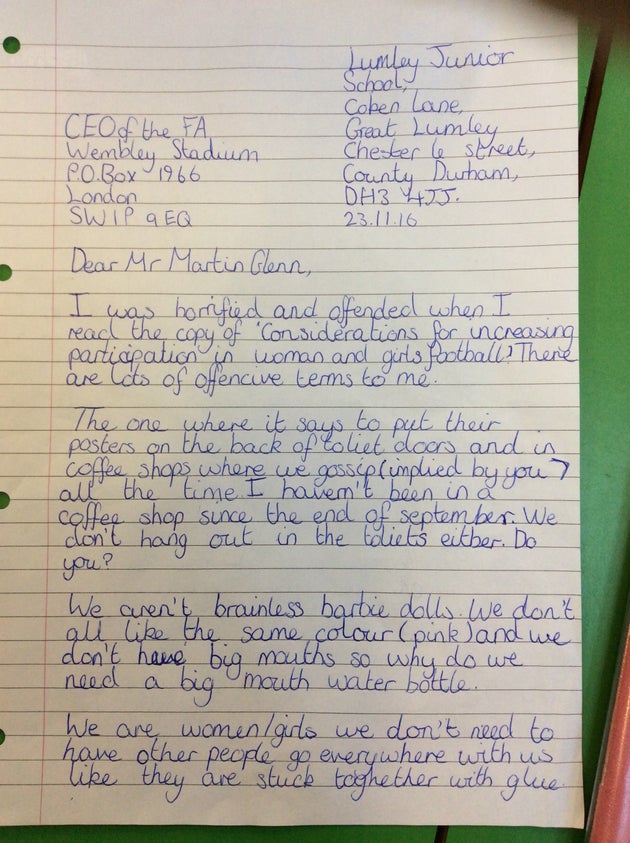 Lumley Junior
School,
Cohen Lane,
Great Lumley
Chester le street,
County Durham,
DH3 4JJ.
23.11.16
CEO of the FA
Wembley Stadium
P.O.Box 1966
London
SW1P 9EQ
Dear Mr Martin Glenn,
I was horrified and offended when I
read the copy of 'Considerations for increasing
participation in woman and girls football'. There
are lots of offencive terms to me.
The one where it says to put their
posters on the back of toliet doors and in
coffee shops where we gossip (implied by you)
all the time I haven't been in a
coffee shop since the end of september. We
don't hang out in the toliets either. Do
you?
We aren't brainless barbie dolls. We don't
all like the same colour (pink) and we
don't have big mouths so why do we
need a big mouth water bottle.
We are women/girls we don't need to
have other people go everywhere with us
like they are stuck toghether with glue.